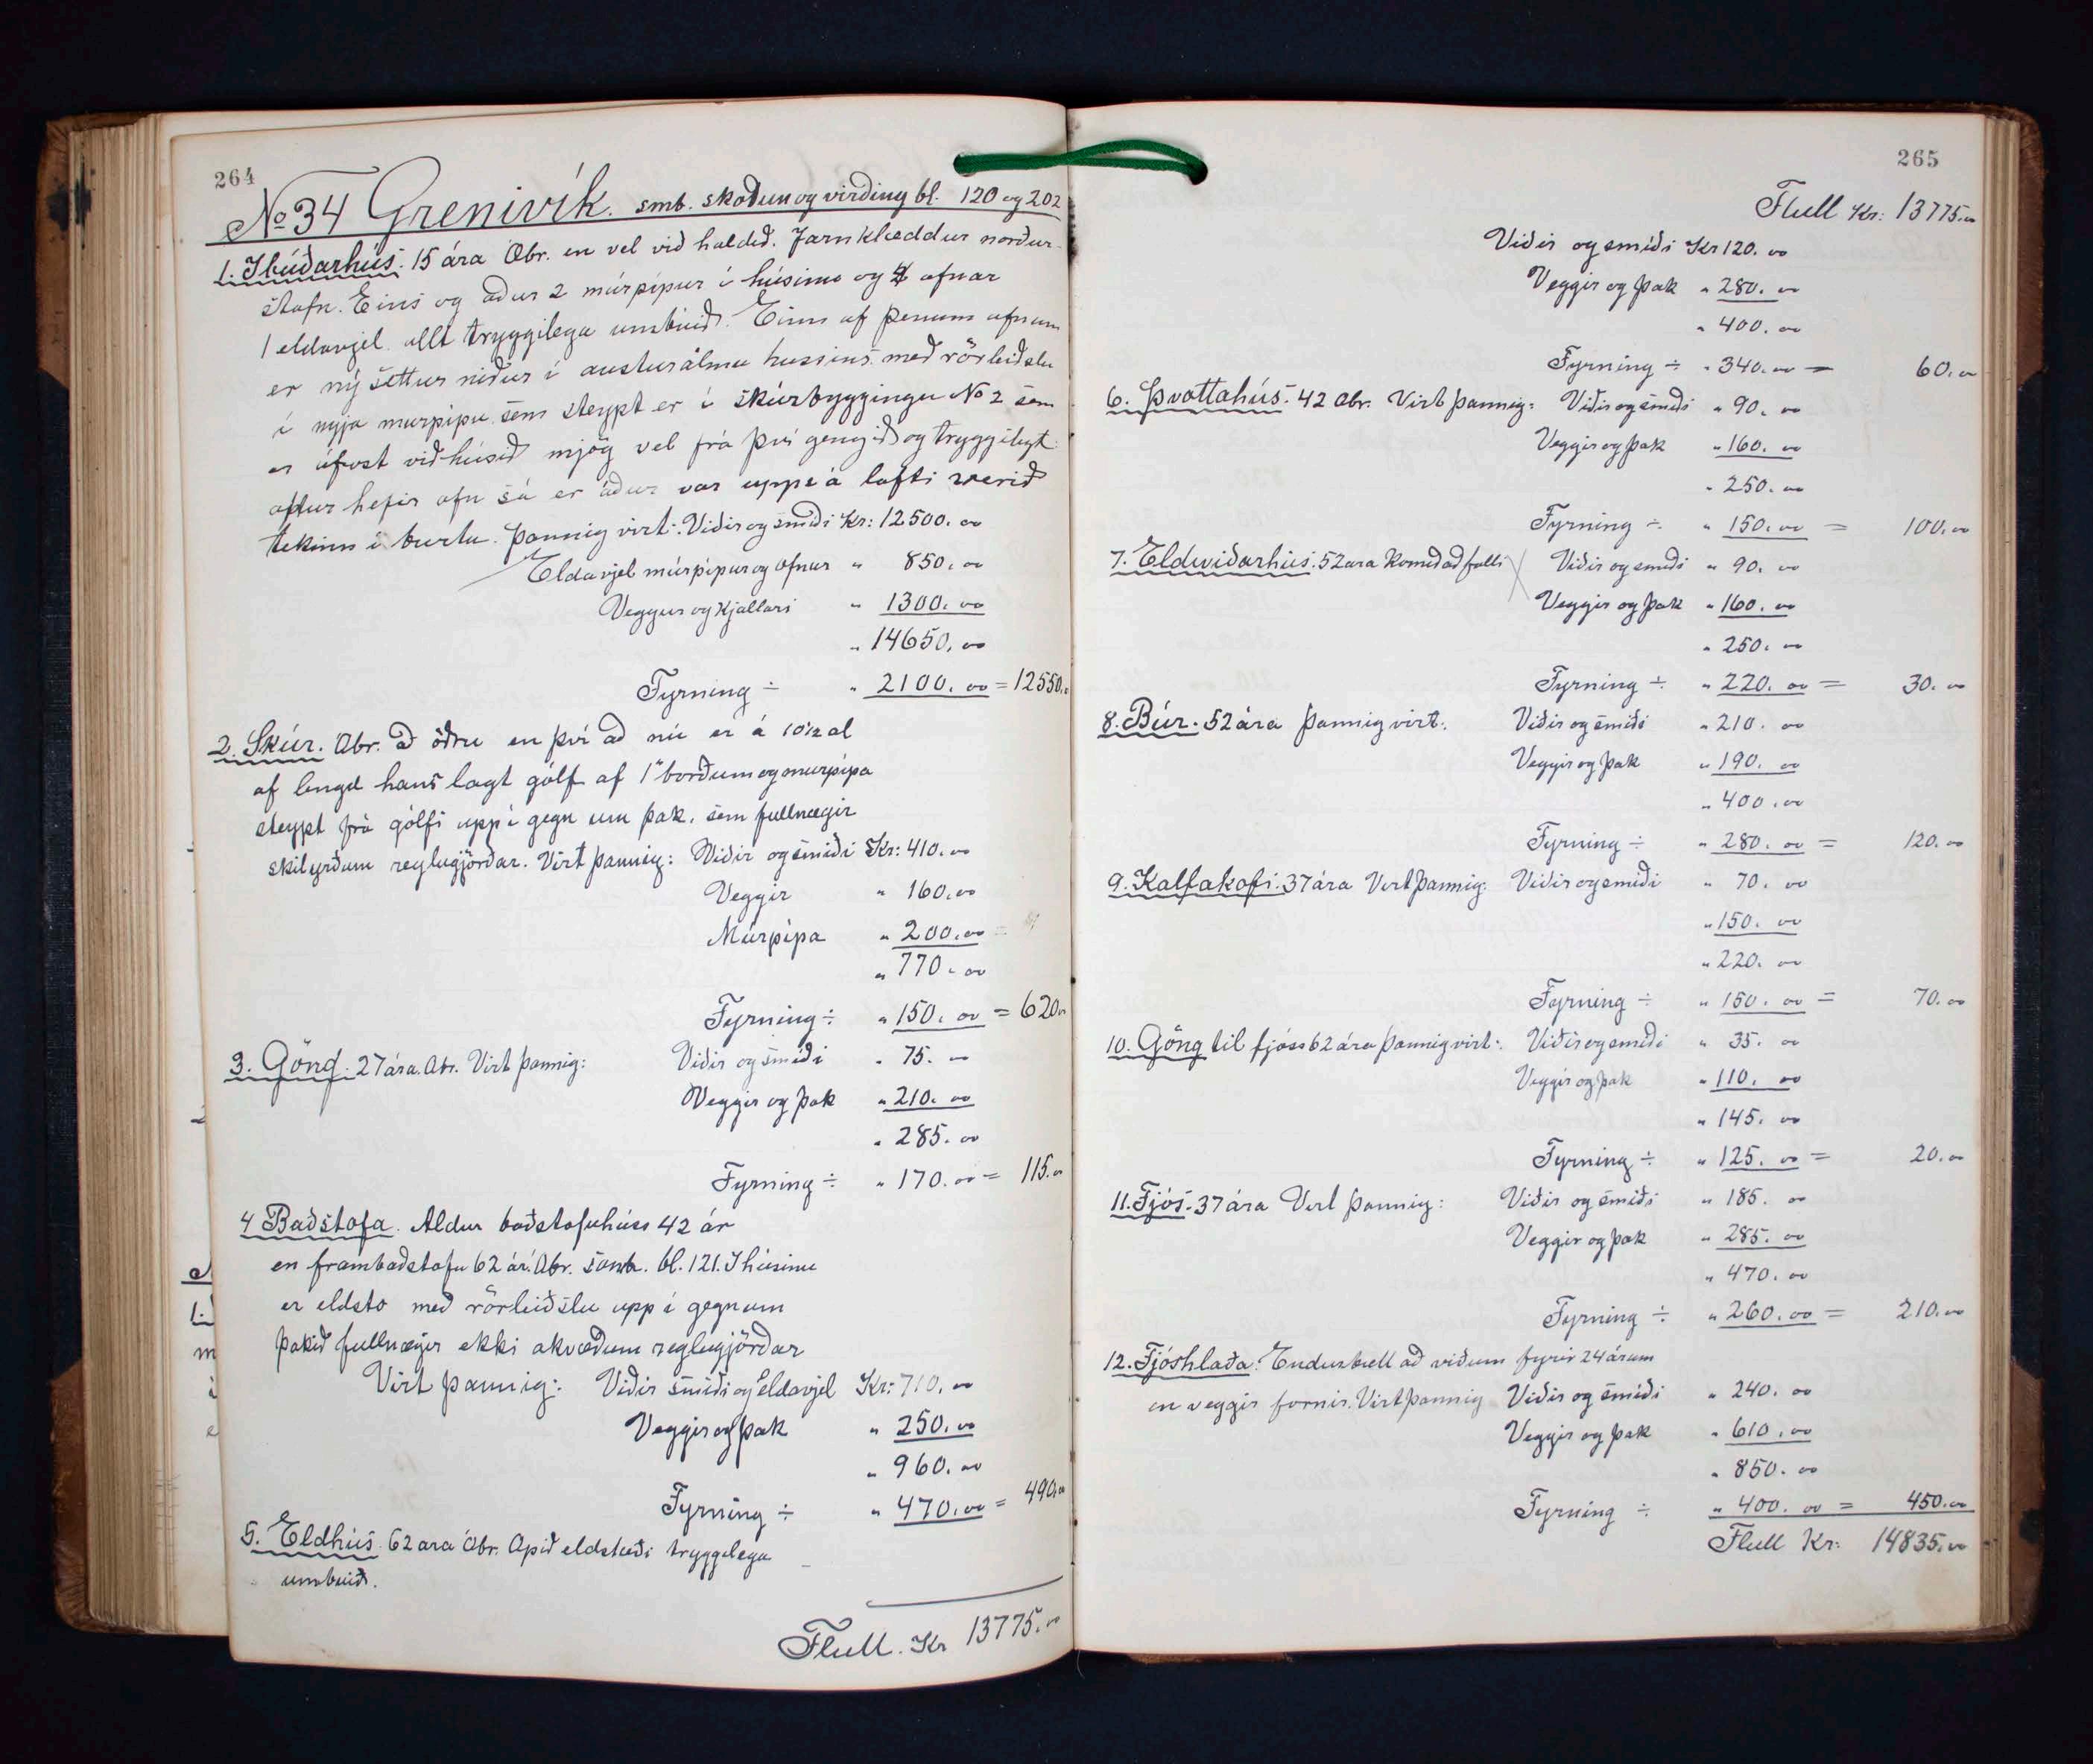 264
No 34 Grenivík. smb. skoðun og virðing bl. 120 og 202
1. Ibúðarhús. 15 ára Obr. en vel við haldið. Jarnklæddur norður-
stafn. Eins og aður 2 múrpípur í húsinu og 4 ofnar
1 eldavjel allt tryggilega umbúið. Einn af þenum ofnum
er ný settur niður í austurálmu hussins með rörleiðslu
í nyja murpípu sem steypt er í skúrbyggingu No 2 sem
er áfost við húsið mjög vel frá því gengið og tryggilegt
aptur hefir ofn sá er áður var uppi á lofti verið
tekinn i burtu. Þannig virt: Viðir og smíði Kr: 12500. oo
Eldavjel múrpípur og ofnar " 850. oo
Veggur og Kjallari " 1300. oo
" 14650. oo
Fyrning ÷ " 2100. oo = 12550. o
2. Skúr. Obr. að öðru en því að nú er á 10 1/2 al
af lengd hans lagt gólf af 1" borðum og murpípa
steypt frá gólfi upp í gegn um þak, sem fullnægir
skilyrðum reglugjörðar. Virt þannig: Viðir og smíði Kr: 410. oo
Veggir " 160. oo
Múrpípa " 200. oo =
" 770. oo
Fyrning ÷ " 150. oo = 620. oo
3. Göng. 27 ára. Obr. Virt þannig: Viðir og smíði " 75. oo
Veggir og þak " 210. oo
" 285. oo
Fyrning ÷ " 170. oo = 115. oo
4 Baðstofa. Aldur baðstofuhúss 42 ár
en frambaðstofu 62 ár. Obr. samb. bl. 121. I húsinu
er eldsto með rörleiðslu upp í gegnum
þakið fullnægir ekki akvæðum reglugjörðar
Virt þannig: Viðir smíði og Eldavjel Kr: 710. oo
Veggir og þak " 250. oo
" 960. oo
Fyrning ÷ " 470. oo = 490. oo
5. Eldhús 62 ara Obr. Opið eldstæði tryggilega
umbúið.
Flutt. Kr 13775. oo
265
Flutt Kr: 13775. oo
Viðir og smíði Kr 120. oo
Veggir og þak " 280. oo
" 400. oo
Fyrning ÷ " 340. oo = 60. oo
6. Þvottahús. 42 Obr. Virt þannig: Viðir og smíði " 90. oo
Veggir og þak " 160. oo
" 250. oo
Fyrning ÷ " 150. oo = 100. oo
7. Eldiviðarhús. 52 ara Komið að falli Viðir og smíði " 90. oo
Veggir og þak " 160. oo
" 250. oo
Fyrning ÷ " 220. oo = 30. oo
8. Búr. 52 ára þannig virt: Viðir og smíði " 210. oo
Veggir og þak " 190. oo
" 400. oo
Fyrning ÷ " 280. oo = 120. oo
9. Kalfakofi. 37 ára Virt þannig: Viðir og smíði " 70. oo
" 150. oo
" 220. oo
Fyrning ÷ " 150. oo = 70. oo
10. Göng til fjóss 62 ára þannig virt: Viðir og smíði " 35. oo
Veggir og þak " 110. oo
" 145. oo
Fyrning ÷ " 125. oo = 20. oo
11. Fjós. 37 ára Virt þannig: Viðir og smíði " 185. oo
Veggir og þak " 285. oo
" 470. oo
Fyrning ÷ " 260. oo = 210. oo
12. Fjóshlaða. Endurbætt að viðum fyrir 24 árum
en veggir fornir. Virt þannig Viðir og smíði " 240. oo
Veggir og þak " 610. oo
" 850. oo
Fyrning ÷ " 400. oo = 450. oo
Flutt Kr: 14835. oo